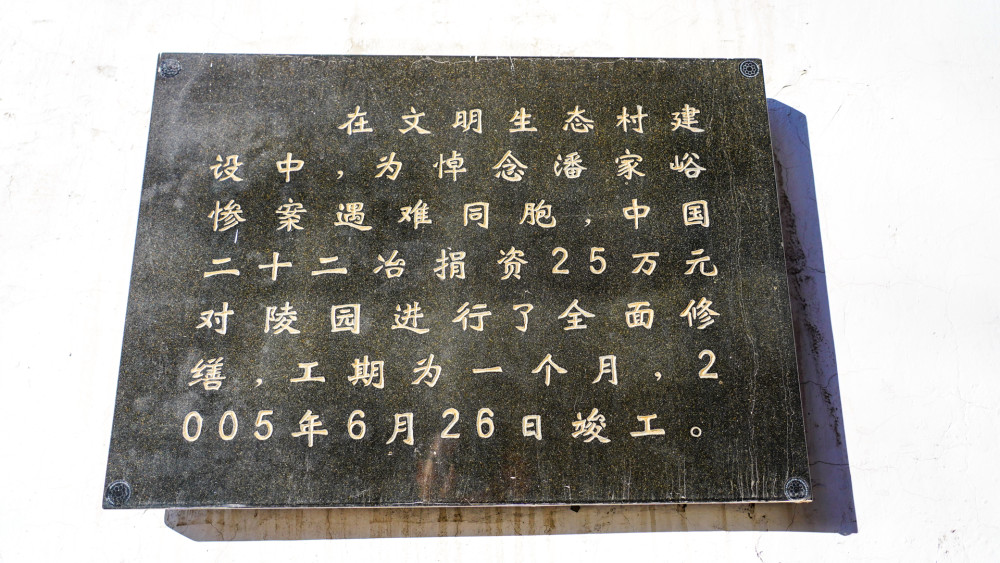 在文明生态村建
设中，为悼念潘家峪
惨案遇难同胞，中国
二十二冶捐资25万元
对陵园进行了全面修
缮，工期为一个月，2
005年6月26日竣工。